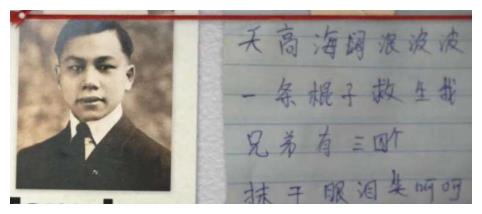 天高海阔浪波波
一条棍子救生我
兄弟有三四个
抹干眼泪笑呵呵